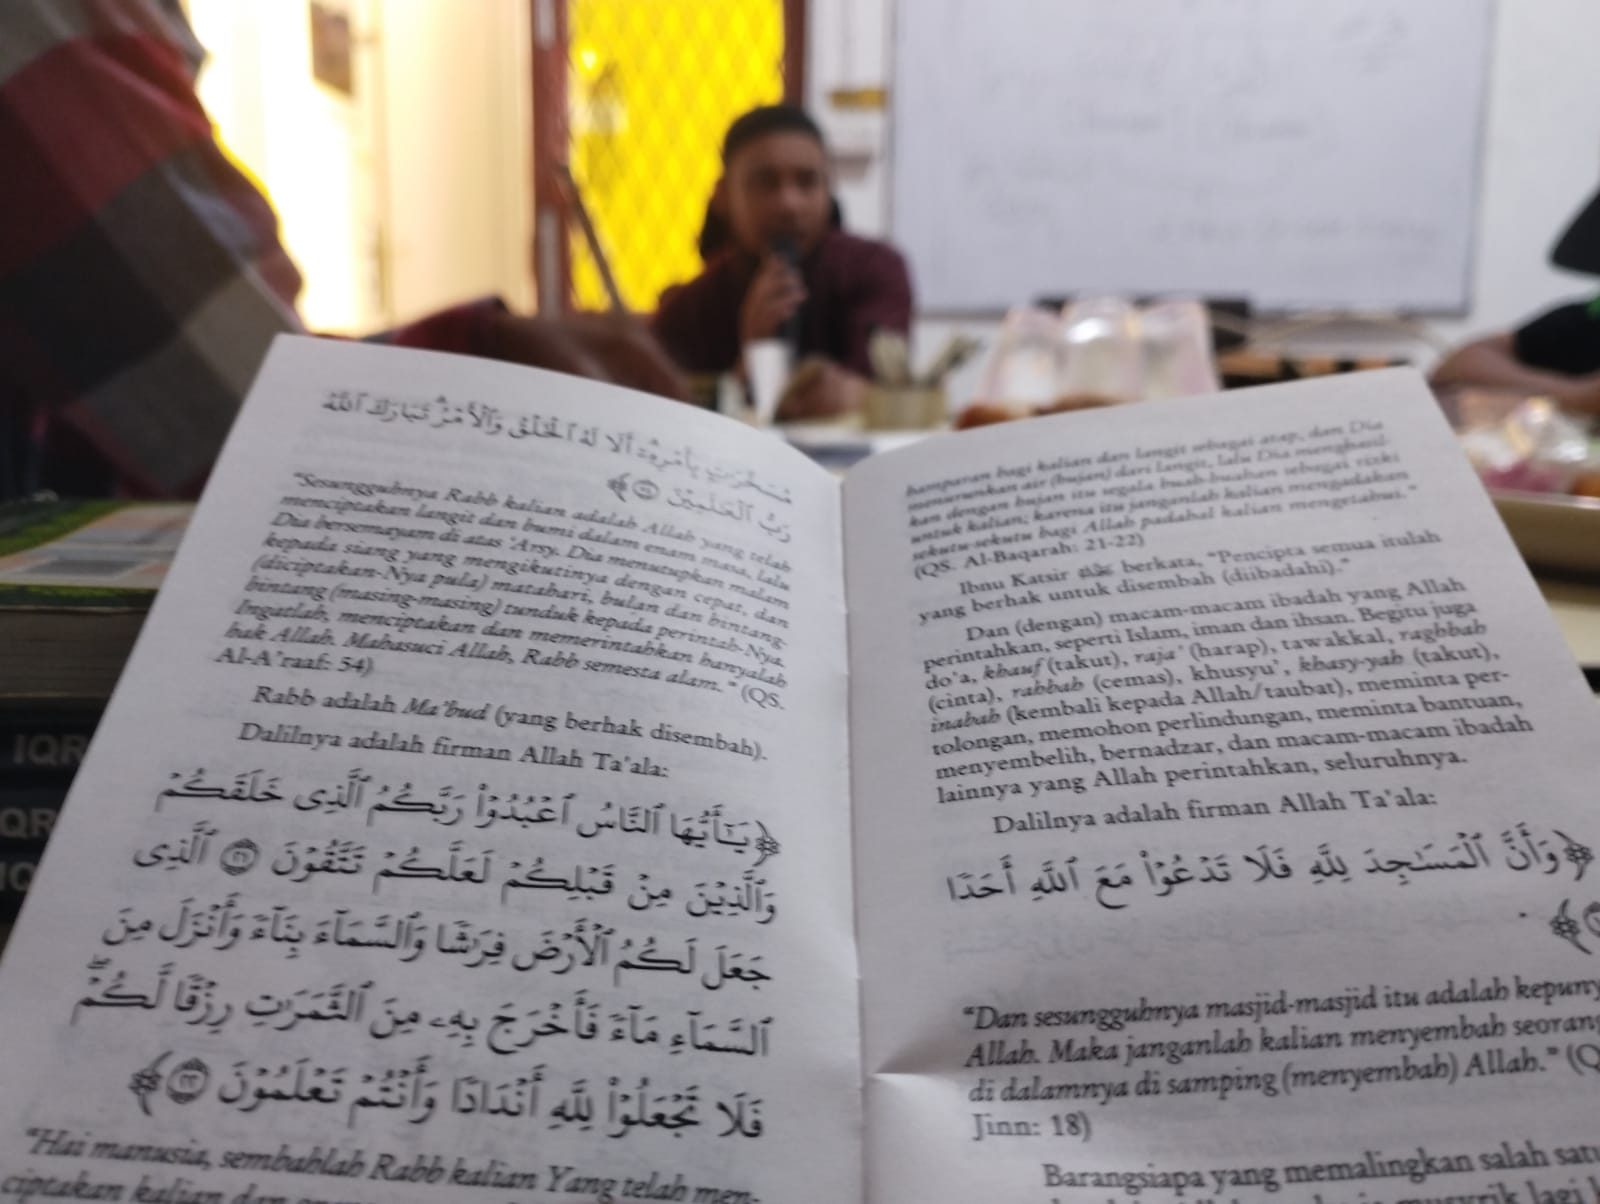 مُسَخَّرَٰتٍۭ بِأَمْرِهِۦٓۗ أَلَا لَهُ ٱلْخَلْقُ وَٱلْأَمْرُۗ تَبَارَكَ ٱللَّهُ
رَبُّ ٱلْعَٰلَمِينَ ۝٥٤﴾
"Sesungguhnya Rabb kalian adalah Allah yang telah
menciptakan langit dan bumi dalam enam masa, lalu
Dia bersemayam di atas 'Arsy. Dia menutupkan malam
kepada siang yang mengikutinya dengan cepat, dan
(diciptakan-Nya pula) matahari, bulan dan bintang-
bintang (masing-masing) tunduk kepada perintah-Nya.
Ingatlah, menciptakan dan memerintahkan hanyalah
hak Allah. Mahasuci Allah, Rabb semesta alam." (QS.
Al-A'raaf: 54)
Rabb adalah Ma'bud (yang berhak disembah).
Dalilnya adalah firman Allah Ta'ala:
﴿يَٰٓأَيُّهَا ٱلنَّاسُ ٱعْبُدُوا۟ رَبَّكُمُ ٱلَّذِى خَلَقَكُمْ
وَٱلَّذِينَ مِن قَبْلِكُمْ لَعَلَّكُمْ تَتَّقُونَ ۝٢١ ٱلَّذِى
جَعَلَ لَكُمُ ٱلْأَرْضَ فِرَٰشًا وَٱلسَّمَآءَ بِنَآءً وَأَنزَلَ مِنَ
ٱلسَّمَآءِ مَآءً فَأَخْرَجَ بِهِۦ مِنَ ٱلثَّمَرَٰتِ رِزْقًا لَّكُمْۖ
فَلَا تَجْعَلُوا۟ لِلَّهِ أَندَادًا وَأَنتُمْ تَعْلَمُونَ ۝٢٢﴾
"Hai manusia, sembahlah Rabb kalian Yang telah men-
ciptakan kalian dan
hamparan bagi kalian dan langit sebagai atap, dan Dia
menurunkan air (hujan) dari langit, lalu Dia menghasil-
kan dengan hujan itu segala buah-buahan sebagai rizki
untuk kalian; karena itu janganlah kalian mengadakan
sekutu-sekutu bagi Allah padahal kalian mengetahui."
(QS. Al-Baqarah: 21-22)
Ibnu Katsir berkata, "Pencipta semua itulah
yang berhak untuk disembah (diibadahi)."
Dan (dengan) macam-macam ibadah yang Allah
perintahkan, seperti Islam, iman dan ihsan. Begitu juga
do'a, khauf (takut), raja' (harap), tawakkal, raghbah
(cinta), rahbah (cemas), khusyu', khasy-yah (takut),
inabah (kembali kepada Allah/taubat), meminta per-
tolongan, memohon perlindungan, meminta bantuan,
menyembelih, bernadzar, dan macam-macam ibadah
lainnya yang Allah perintahkan, seluruhnya.
Dalilnya adalah firman Allah Ta'ala:
﴿وَأَنَّ ٱلْمَسَٰجِدَ لِلَّهِ فَلَا تَدْعُوا۟ مَعَ ٱللَّهِ أَحَدًا
﴾
"Dan sesungguhnya masjid-masjid itu adalah kepuny
Allah. Maka janganlah kalian menyembah seoran
di dalamnya di samping (menyembah) Allah." (Q
Jinn: 18)
Barangsiapa yang memalingkan salah sat
IQR
QR
IQ